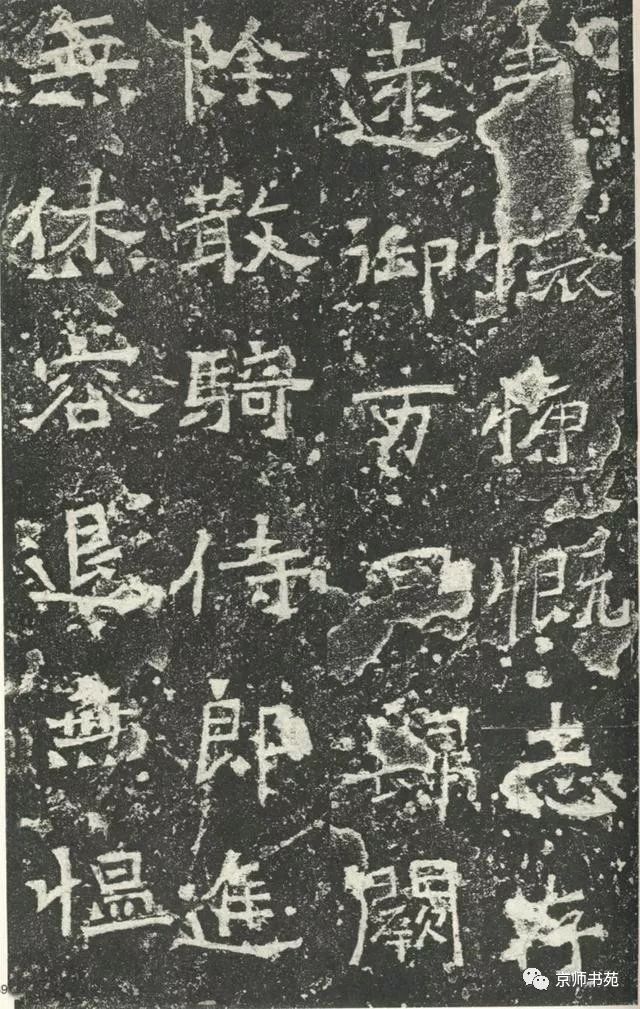 懷慷慨志存
遠御万歸闕
除散騎侍郎進
無烋容退無愠
京师书苑